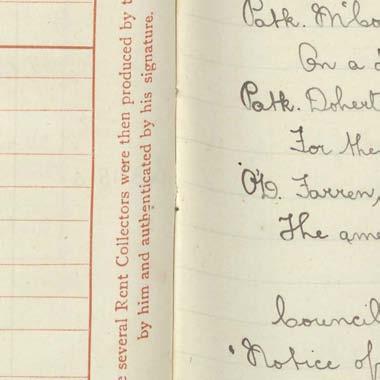 several Rent Collectors were then produced by
by him and authenticated by his signature.
Patk.
On a
Patk.
For the
O'D. Farren,
The
Council
Notice of